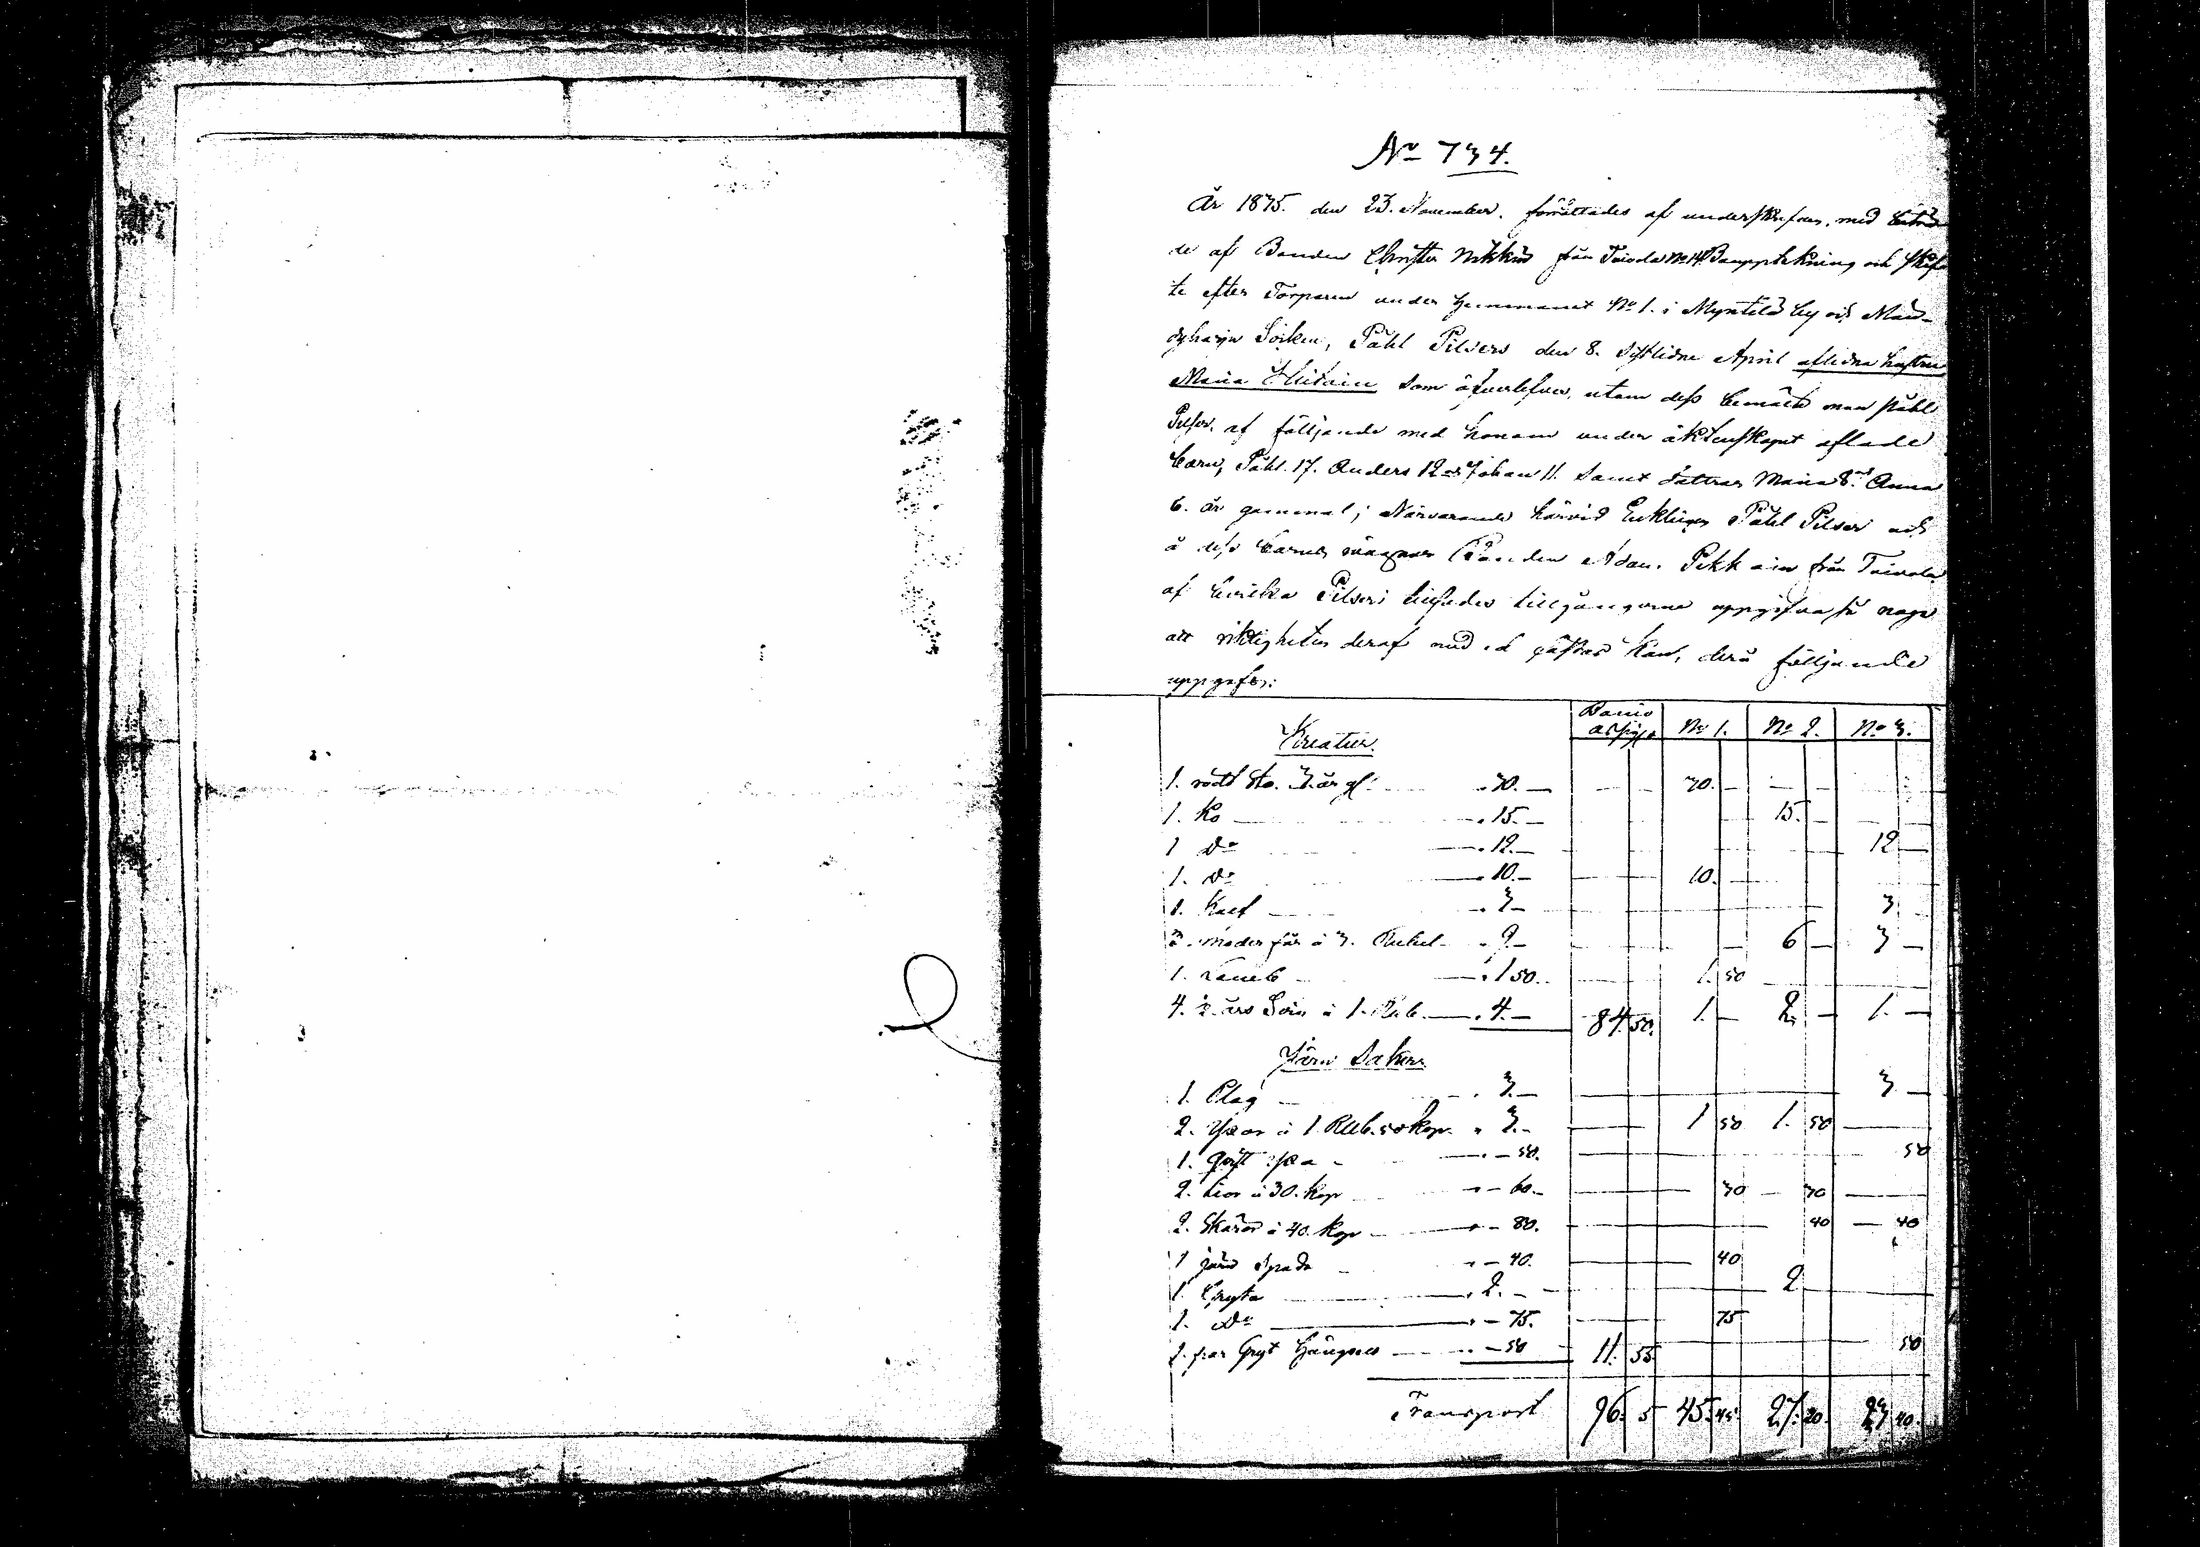 No 734.
År 1875. den 23. November. förrättades af underskrefven, med biträ-
de af Bonden Christer Nikkus från Toivola No 14. Bouppteckning och skifte
te efter Torparen under Hemmanet No 1. i Myntilä by och Män-
dyharju Soiken, Påhl Pilsers den 8. sistlidne April aflidna hustru
Maria som öfverlefves, utom dess bemälte man Påhl
af följande med honom under äktenskapet aflade
barn, Påhl. 17. Anders 12 och Johan 11. samt döttrar Maria 8. och Anna
6. år gammal; Närvarande härvid Enklingen Påhl Pilser och
å dess barnes vägnar Bonden Adam. Pekkain från Toivola
af Pilser tillgångarne uppgifna så noga
att riktigheten deraf med ed fästas kan, derå följande
uppgafs:
Kreatur. Bouis No 1. No 2. No 3.
1. rödt Sto. 3. år gl: " 30. — 30. —
1. Ko " 15. — 15. —
1 Do " 12. — 12 —
1. Do " 10. — 10. —
1. Kalf " 3 — 3
3. moder får à 3. Rubel " 9 — 6 — 3 —
1. Lamb " 1 50. 1. 50
4. ½ års Svin à 1. Rub. " 4. — 84 50. 1. — 2. — 1. —
Järn Saker
1. Plog " 3. — 3 —
2. Yxor à 1. Rub. 50 kop. " 3. — 1 50 1. 50
1. yxa " — 50. 50
2. Lior à 30. kop " — 60. — 30 — 30
2. Skäror à 40. kop " — 80. 40 — 40
1 järn spada " — 40. 40
1. Gryta " 2. — 2
1. Do " — 75. 75
1. par Gryt Hängsel " — 50 11. 55 50
Transport 96. 5 45. 45. 27. 20. 23 40.